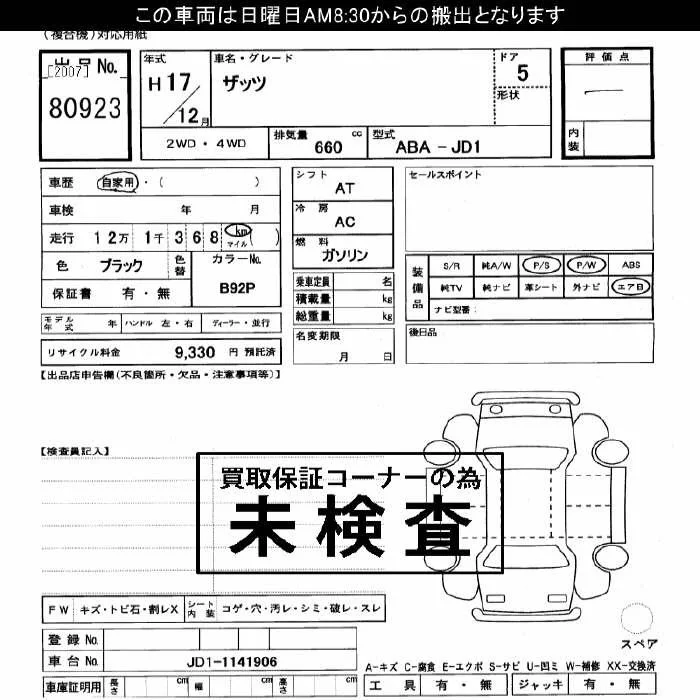 この車両は日曜日AM8:30からの搬出となります
(複合機)対応用紙
出品No.
[2007]
80923
年式
H17/12月
車名・グレード
ザッツ
ドア
5
形状
評価点
内装
2WD・4WD
排気量 660 cc
型式 ABA-JD1
車歴 自家用・( )
車検 年 月
走行 12万 1千368 km マイル ( )
色 ブラック 色替
カラーNo.
B92P
保証書 有・無
シフト
AT
冷房
AC
燃料
ガソリン
セールスポイント
装備品
S/R 純A/W P/S P/W ABS
純TV 純ナビ 革シート 外ナビ エアB
ナビ型番:
乗車定員 名
積載量 kg
総重量 kg
モデル年式 年 ハンドル 左・右 ディーラー・並行
名変期限
月 日
後日品
リサイクル料金 9,330 円 預託済
【出品店申告欄(不良箇所・欠品・注意事項等)】
【検査員記入】
買取保証コーナーの為
未検査
FW キズ・トビ石・割レX シート内装 コゲ・穴・汚レ・シミ・破レ・スレ
スペア
登録No.
車台No. JD1-1141906
A-キズ C-腐食 E-エクボ S-サビ U-凹ミ W-補修 XX-交換済
車庫証明用 長さ cm 幅 cm 高さ cm
工具 有・無 ジャッキ 有・無